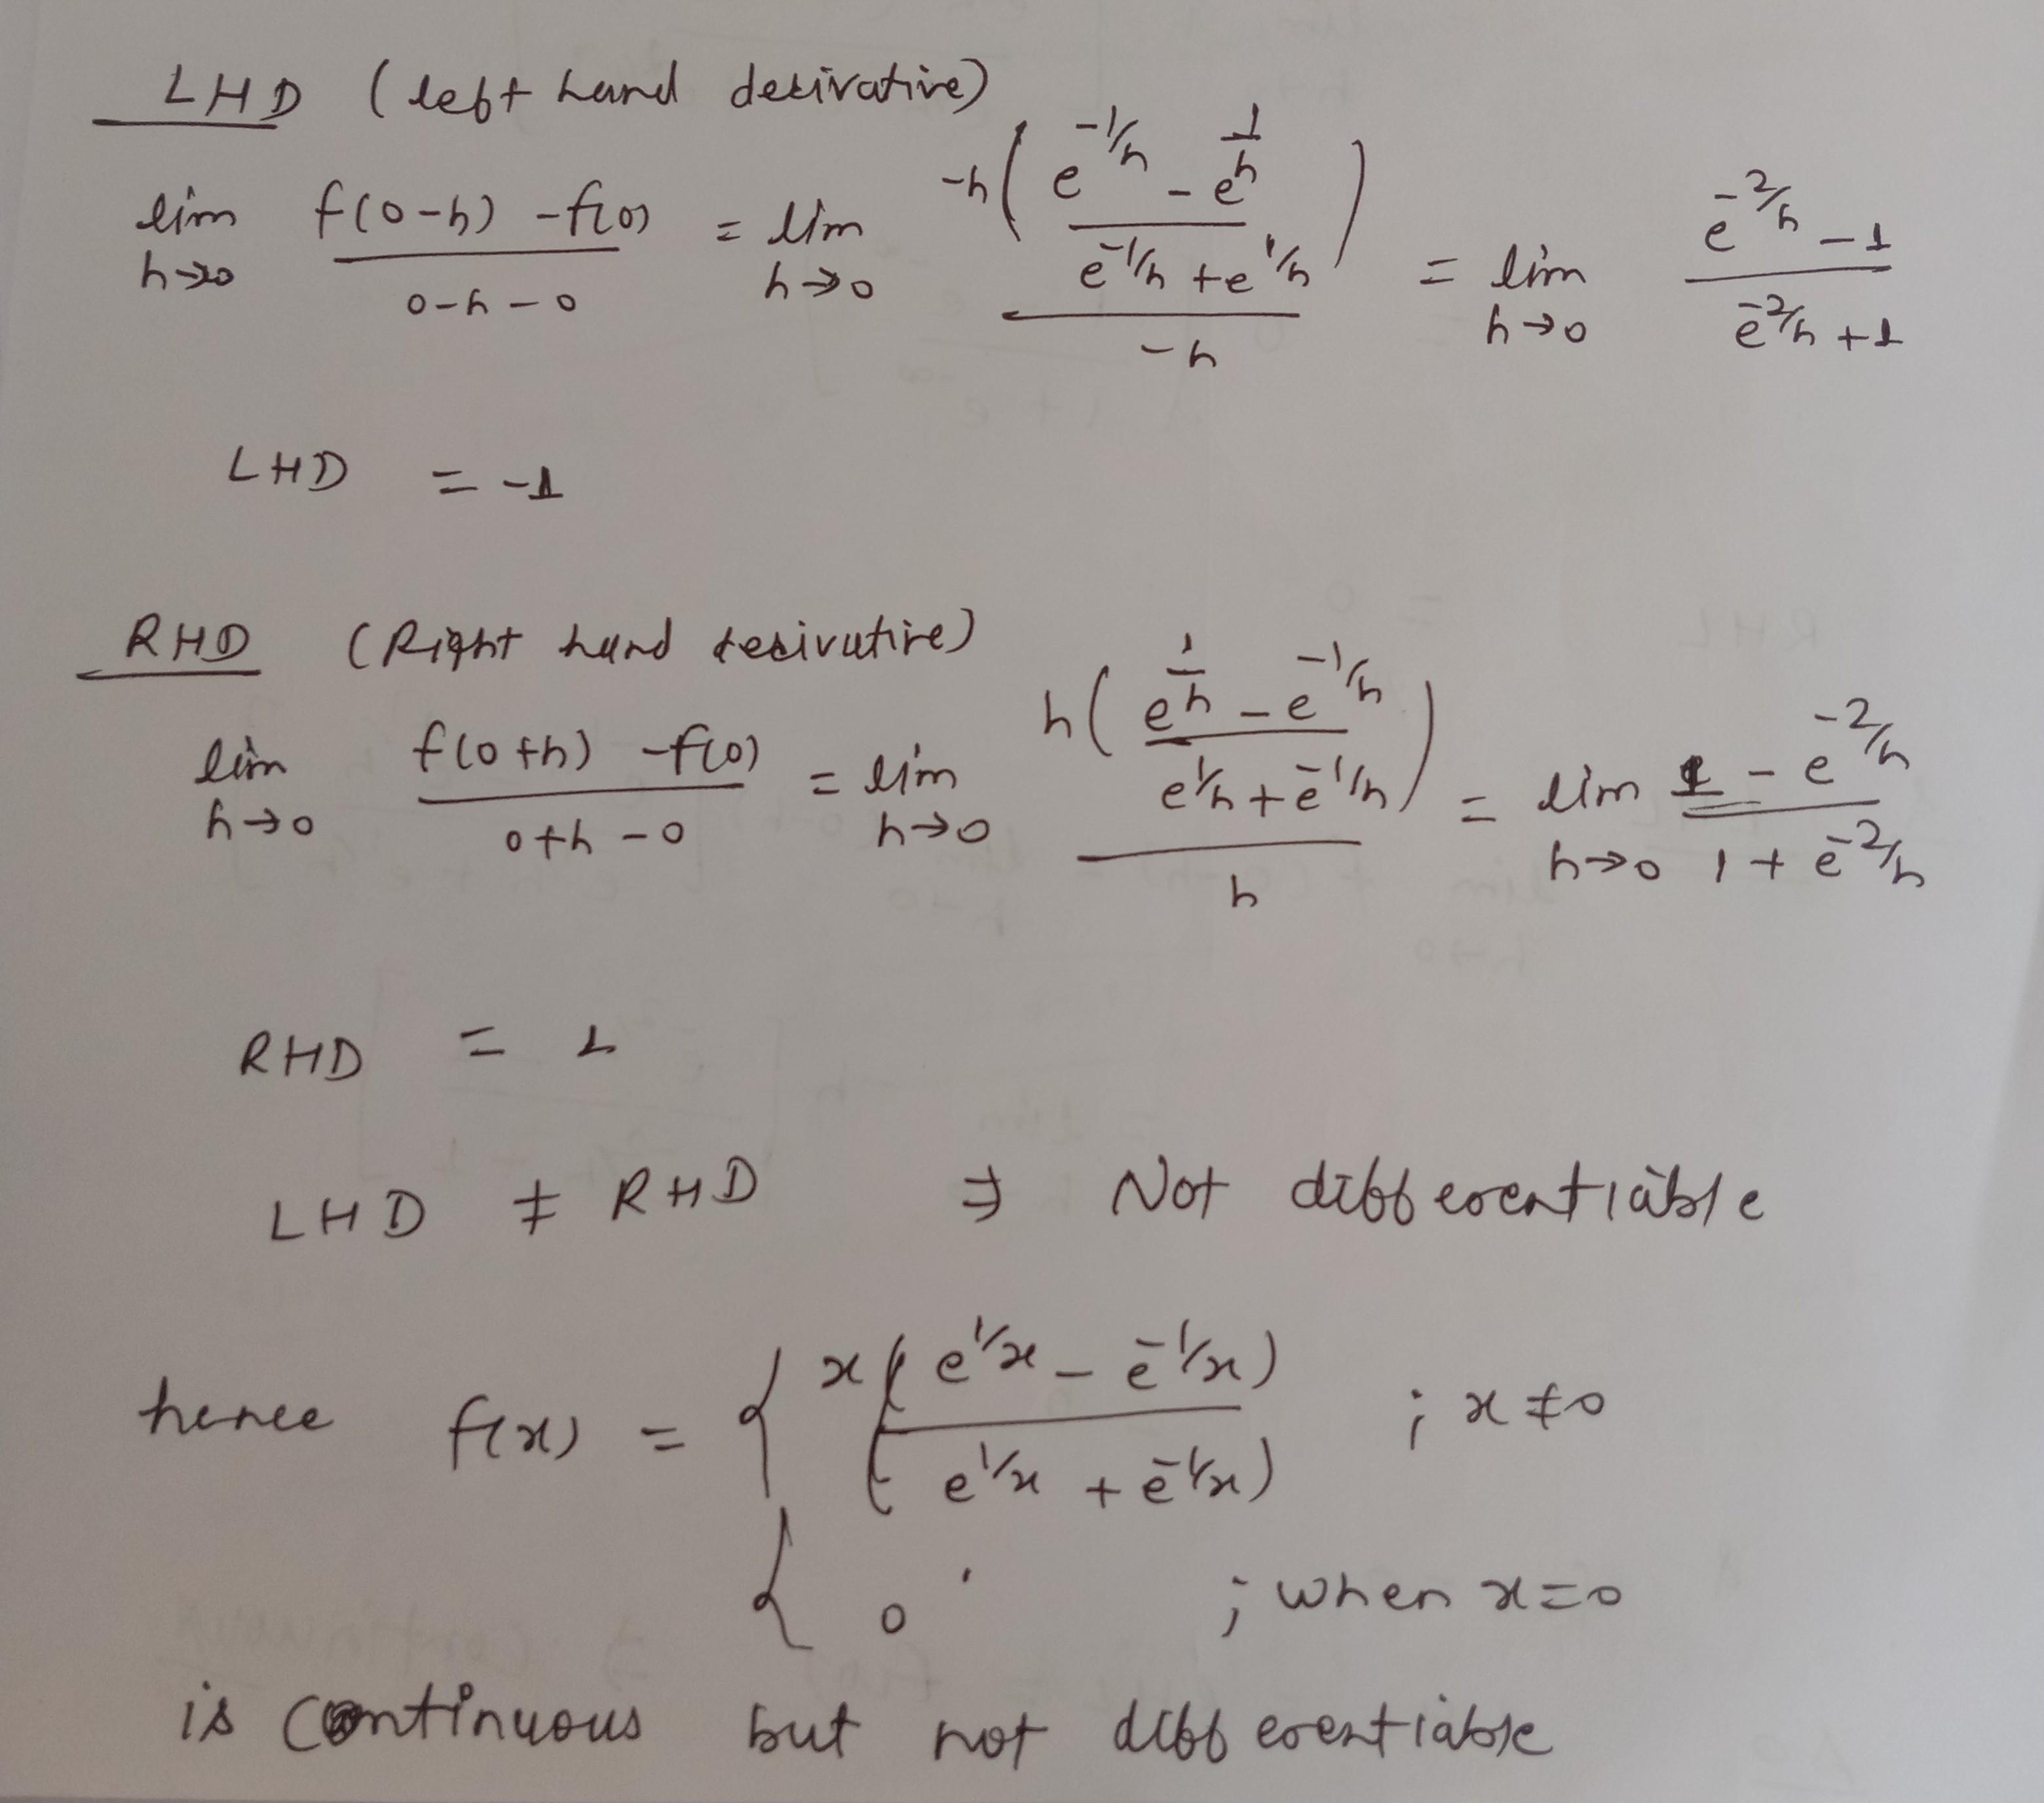 LHD (left hand derivative)
lim h→0 f(0-h) - f(0) / 0-h-0 = lim h→0 -h( e^-1/h - e^1/h / e^-1/h + e^1/h ) / -h = lim h→0 e^-2/h - 1 / e^-2/h + 1
LHD = -1
RHD (Right hand derivative)
lim h→0 f(0+h) - f(0) / 0+h-0 = lim h→0 h( e^1/h - e^-1/h / e^1/h + e^-1/h ) / h = lim h→0 1 - e^-2/h / 1 + e^-2/h
RHD = 1
LHD ≠ RHD ⇒ Not differentiable
hence f(x) = { x( e^1/x - e^-1/x ) / ( e^1/x + e^-1/x ) ; x≠0
{ 0 ; when x=0
is continuous but not differentiable